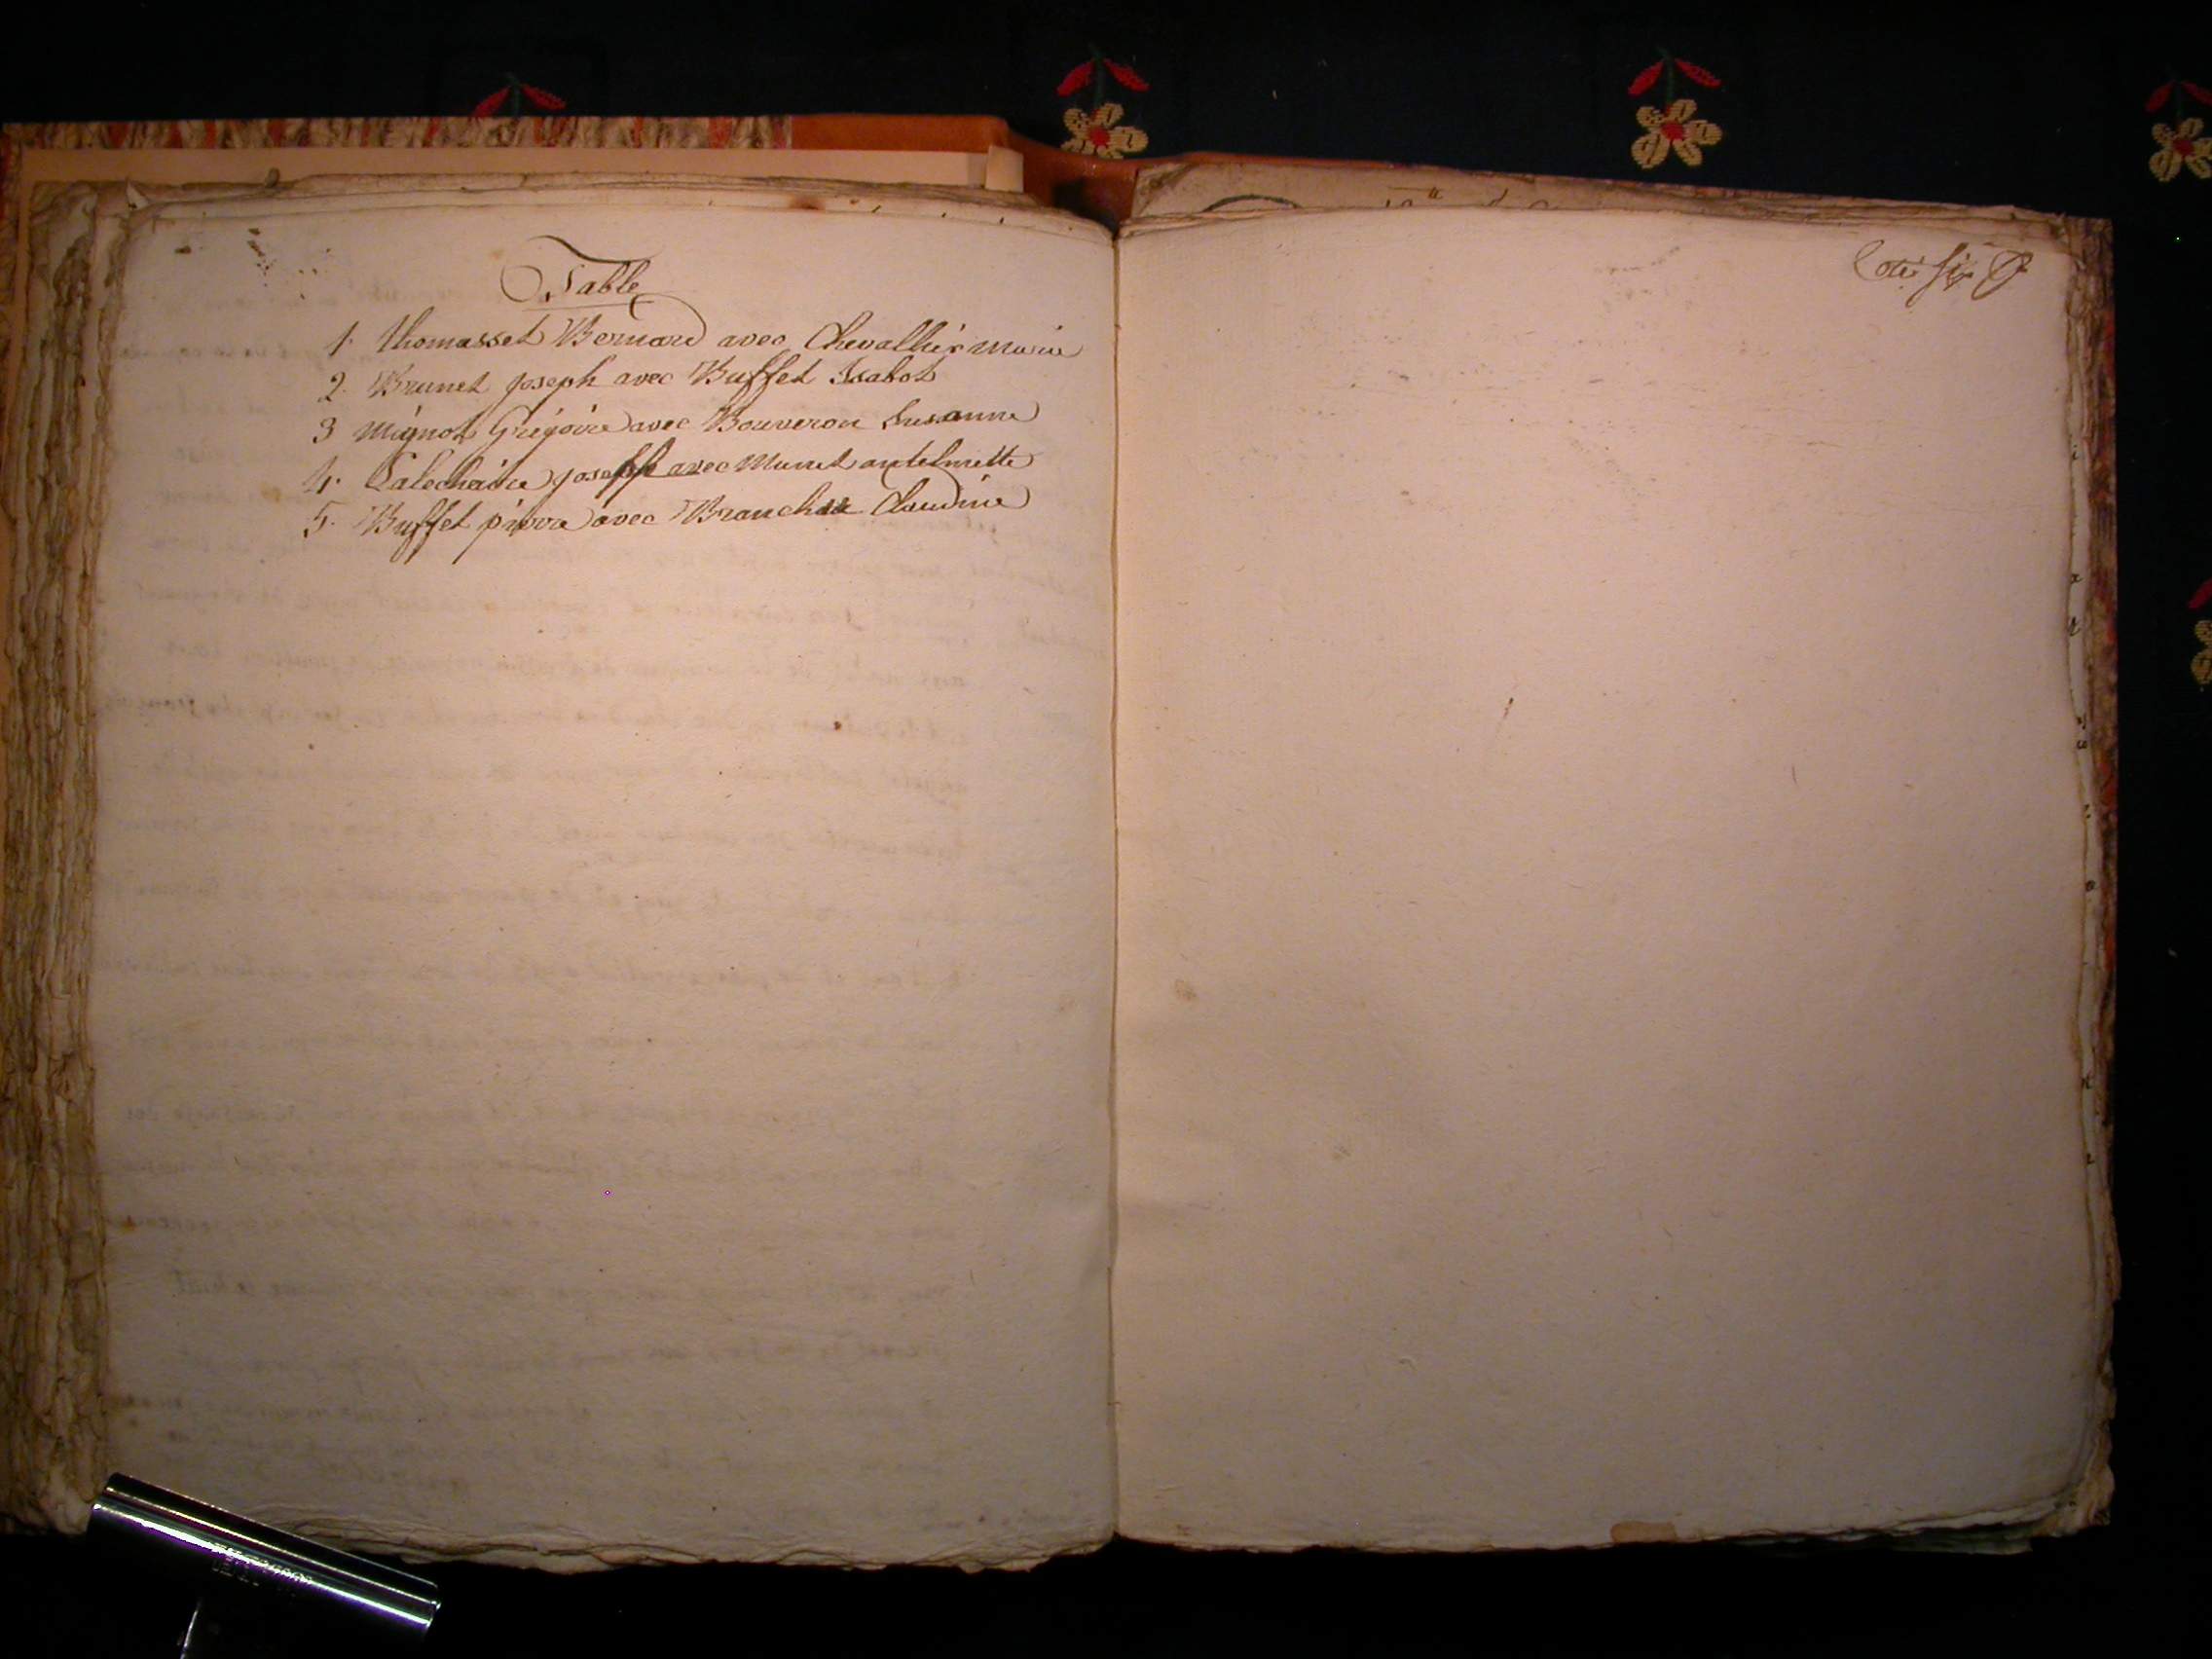 Table
1. Thomasset Bernard avec Chevallier Marie
2. Brunet Joseph avec Buffet Isabot
3 Mignot Grégoire avec Bouveron Susanne
4. Calechaire Joseph avec Munet antelmette
5. Buffet pierre avec Branche Claudine
Coté six